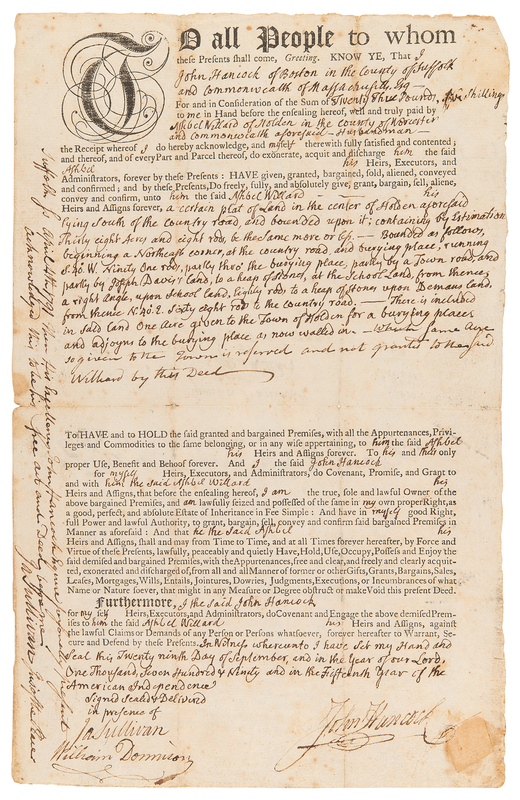 TO all People to whom
these Presents shall come, Greeting. KNOW YE, That I
John Hancock of Boston in the County of Suffolk
and Commonwealth of Massachusetts, Esq —
For and in Consideration of the Sum of Twenty Three Pounds, five shillings
to me in Hand before the ensealing hereof, well and truly paid by
Ashbel Willard of Holden in the County of Worcester
and Commonwealth aforesaid — Husbandman —
the Receipt whereof I do hereby acknowledge, and myself therewith fully satisfied and contented;
and thereof, and of every Part and Parcel thereof, do exonerate, acquit and discharge him the said
Ashbel his Heirs, Executors, and
Administrators, forever by these Presents: HAVE given, granted, bargained, sold, aliened, conveyed
and confirmed; and by these Presents, Do freely, fully, and absolutely give, grant, bargain, sell, aliene,
convey and confirm, unto him the said Ashbel Willard his
Heirs and Assigns forever, a certain plat of Land in the center of Holden aforesaid
lying South of the country road, and bounded upon it; containing by Estimation
Thirty eight Acres and eight rod, be the same more or less. — Bounded as follows,
beginning a Northeast corner, at the country road and burying place, running
S. 20. W. Ninity One rod, partly thro' the burying place, partly by a Town road, and
partly by Joseph Davis's land, to a heap of stones, at the School Land, from thence
a right angle, upon School land, Eighty rod to a heap of stones upon Demaus land,
from thence N. 20. E. Sixty eight rod to the country road. — There is included
in said land One Acre given to the Town of Holden for a burying place
and adjoyns to the burying place as now walled in — Which same Acre
so given to the Town is reserved and not granted to the said
Willard by this Deed
To HAVE and to HOLD the said granted and bargained Premises, with all the Appurtenances, Privi-
leges and Commodities to the same belonging, or in any wise appertaining, to him the said Ashbel
his Heirs and Assigns forever. To his and their only
proper Use, Benefit and Behoof forever. And I the said John Hancock
for myself Heirs, Executors, and Administrators, do Covenant, Promise, and Grant to
and with him the said Ashbel Willard his
Heirs and Assigns, that before the ensealing hereof, I am the true, sole and lawful Owner of the
above bargained Premises, and am lawfully seized and possessed of the same in my own proper Right, as
a good, perfect, and absolute Estate of Inheritance in Fee Simple: And have in myself good Right,
full Power and lawful Authority, to grant, bargain, sell, convey and confirm said bargained Premises in
Manner as aforesaid: And that he the said Ashbel his
Heirs and Assigns, shall and may from Time to Time, and at all Times forever hereafter, by Force and
Virtue of these Presents, lawfully, peaceably and quietly Have, Hold, Use, Occupy, Possess and Enjoy the
said demised and bargained Premises, with the Appurtenances, free and clear, and freely and clearly acquit-
ted, exonerated and discharged of, from all and all Manner of former or other Gifts, Grants, Bargains, Sales,
Leases, Mortgages, Wills, Entails, Jointures, Dowries, Judgments, Executions, or Incumbrances of what
Name or Nature soever, that might in any Measure or Degree obstruct or make Void this present Deed.
Furthermore, I the said John Hancock
for my self Heirs, Executors, and Administrators, do Covenant and Engage the above demised Premi-
ses to him the said Ashbel Willard his Heirs and Assigns, against
the lawful Claims or Demands of any Person or Persons whatsoever, forever hereafter to Warrant, Se-
cure and Defend by these Presents. In Witness whereunto I have set my Hand and
Seal this Twenty Ninth Day of September, and in the Year of our Lord,
One Thousand, Seven Hundred & Ninity and in the Fifteenth Year of the
American Independence
Signed Sealed & Delivered
in presence of
Ja Sullivan
William Donnison
John Hancock
Suffolk Ss. April 4th 1791. Then His Excellency John Hancock
acknowledged this to be his free act and Deed, before me
Ja Sullivan